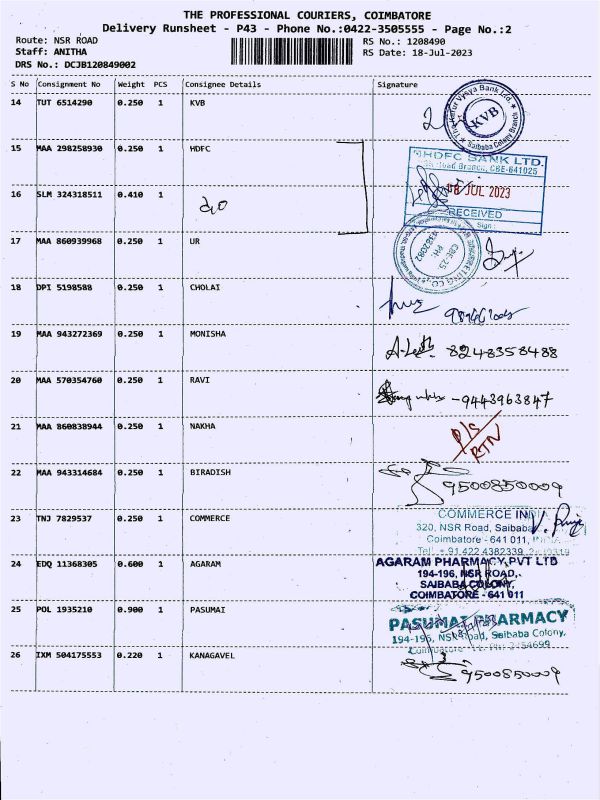 THE PROFESSIONAL COURIERS, COIMBATORE
Delivery Runsheet - P43 - Phone No.:0422-3505555 - Page No.:2
Route: NSR ROAD
RS No.: 1208490
Staff: ANITHA
RS Date: 18-Jul-2023
DRS No.: DCJB120849002
S No Consignment No Weight PCS Consignee Details Signature
14 TUT 6514290 0.250 1 KVB
The Karur Vysya Bank Ltd. KVB Saibaba Colony Branch
15 MAA 298258930 0.250 1 HDFC
HDFC BANK LTD.
Road Branch, CBE-641025
16 SLM 324318511 0.410 1
18 JUL 2023
RECEIVED
Sign :
17 MAA 860939968 0.250 1 UR
CBE-25.
PH:
4382082
18 DPI 5198588 0.250 1 CHOLAI
19 MAA 943272369 0.250 1 MONISHA
8248358488
20 MAA 570354760 0.250 1 RAVI
-9443963847
21 MAA 860838944 0.250 1 NAKHA
P/S
RTN
22 MAA 943314684 0.250 1 BIRADISH
9500850009
23 TNJ 7829537 0.250 1 COMMERCE
COMMERCE INDIA
320, NSR Road, Saibaba
Coimbatore - 641 011,
Tel : + 91 422 4382339
24 EDQ 11368305 0.600 1 AGARAM
AGARAM PHARMACY PVT LTD
194-196, NSR ROAD,
SAIBABA COLONY,
COIMBATORE - 641 011
25 POL 1935210 0.900 1 PASUMAI
PASUMAI PHARMACY
194-196, NSR Road, Saibaba Colony,
Coimbatore
26 IXM 504175553 0.220 1 KANAGAVEL
9500850009